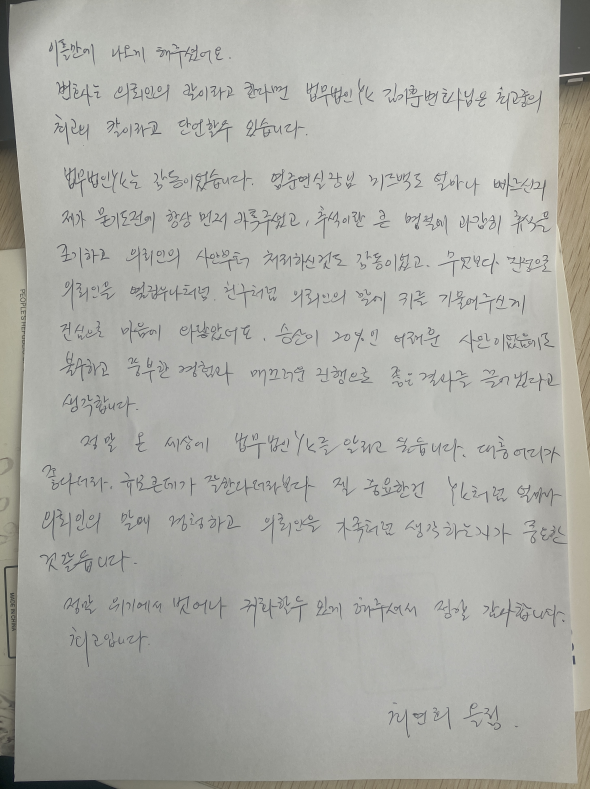 이틀만에 나오게 해주셨어요.
변호사는 의뢰인의 칼이라고 한다면 법무법인YK 김지훈변호사님은 최고중의
최고의 칼이라고 단언할수 있습니다.
법무법인YK는 감동이었습니다. 염중연실장님 피드백도 얼마나 빠르신지
제가 묻기도전에 항상 먼저 카톡주셨고, 추석이란 큰 명절에 과감히 휴식을
포기하고 의뢰인의 사안부터 처리하신것도 감동이었고. 무엇보다 진심으로
의뢰인을 옆집누나처럼, 친구처럼 의뢰인의 말에 귀를 기울여주신게
진심으로 마음에 와닿았어요. 승산이 20%인 어려운 사안이었는데도
불구하고 풍부한 경험과 매끄러운 진행으로 좋은결과를 끌어냈다고
생각합니다.
정말 온 세상에 법무법인YK를 알리고 싶습니다. 대형어디가
좋다더라. 규모큰데가 잘한다더라보다 젤 중요한건 YK처럼 얼마나
의뢰인의 말에 경청하고 의뢰인을 가족처럼 생각하는지가 중요한
것같습니다.
정말 위기에서 벗어나 귀화할수 있게 해주셔서 정말 감사합니다.
최고입니다.
최연희 올림.
PEOPLE'S
MADE IN CHINA